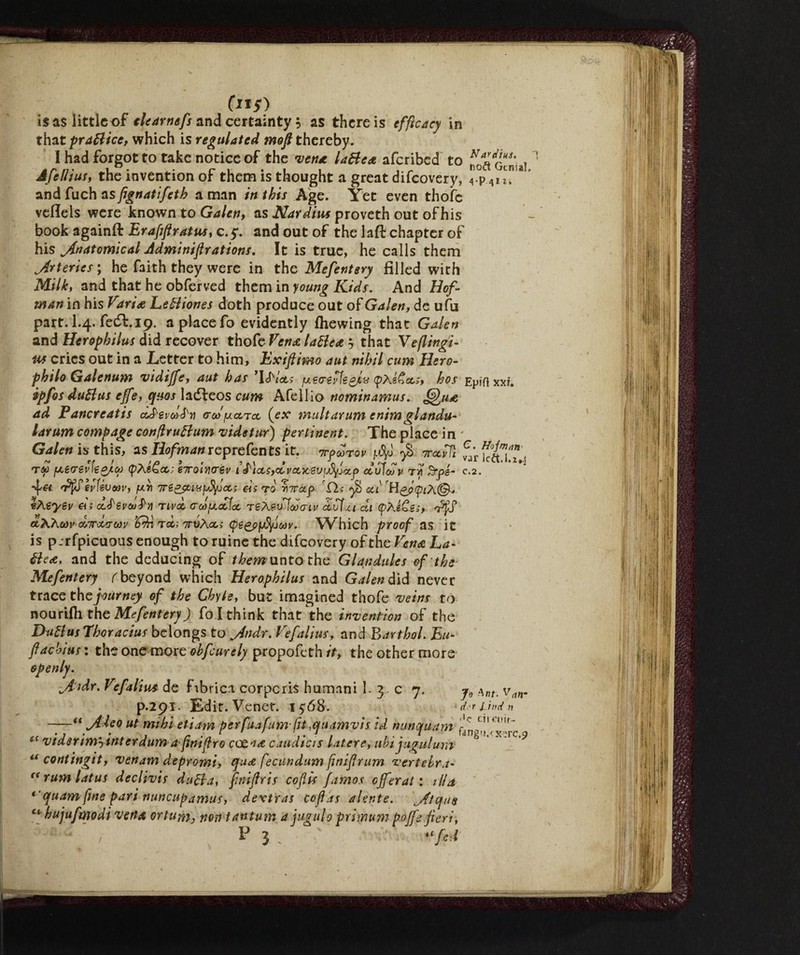 (115)
is as little of clearness and certainty; as there is efficacy in
that practice, which is regulated most thereby.
I had forgot to take notice of the venæ lacteæ ascribed to
Asellius, the invention of them is thought a great discovery,
and such as signatiseth a man in this Age. Yet even those
vessels were known to Galen, as Nardius proveth out of his
book against Erasistratus, c.5. and out of the last chapter of
his Anatomical Administrations. It is true, he calls them
Arteries; he saith they were in the Mesentery filled with
Milk, and that he observed them in young Kids. And Hof-
man in his Variæ Lectiones doth produce out of Galen, de usu
part. l.4. sect.19. a place so evidently shewing that Galen
and Herophilus did recover those Venæ lacteæ; that Vestingi-
us cries out in a Letter to him, Existimo aut nihil cum Hero-
philo Galenum vidisse, aut has Ἰδίας μεσεντερίῳ φλέβας, hos
ipsos ductus esse, quos lacteos cum Asellio nominamus. Quæ
ad Pancreatis ἀδενώδη σώματα (ex multarum enim glandu-
larum compage constructum videtur) pertinent. The place in
Galen is this, as Hofman represents it. πρῶτον μὲν γὰρ παντὶ
τῷ μεσεντερίῳ φλέβας ἐποίησεν ἰδίας, ἀνακειμένας αὐτῶν τῇ θρέ-
ψει τῶν ἐντέρων, μὴ περαιουμένας εἰς τὸ ἧπαρ. Ὡς γὰρ καὶ Ἡρόφιλος
ἔλεγεν εἰς ἀδενώδη τινὰ σώματα τελευτῶσιν αὗται αἱ φλέβες, τῶν
ἄλλων ἁπασῶν ἐπὶ τὰς πύλας φερομένων. Which proof as it
is perspicuous enough to ruine the discovery of the Venæ La-
cteæ, and the deducing of them unto the Glandules of the
Mesentery (beyond which Herophilus and Galen did never
trace the journey of the Chyle, but imagined those veins to
nourish the Mesentery) so I think that the invention of the
Ductus Thoracius belongs to Andr. Vesalius, and Barthol. Eu-
stachius: the one more obscurely proposeth it, the other more
openly.
Andr. Vesalius de fibrica corporis humani l. 3. c 7.
p.291. Edit. Venet. 1568.
——“ Adeo ut mihi etiam persuasum sit, quamvis id nunquam
“ viderim, interdum a sinistro coenæ caudicis latere, ubi jugulum
“ contingit, venam depromi, quæ secundum sinistrum vertebra-
“ rum latus declivis ducta, sinistris costis famos offerat: illa
“ quam sine pari nuncupamus, dextras costas alente. Atque
“ hujusmodi venæ ortum, non tantum a jugulo primum posse fieri,
P 3 “sed
Nardius.
noct Genial.
4.p.411.
Epist xxi.
C. Hofman
var lect.l.2.
c.2.
Jo Ant. Van-
der Lind n
de circuir-
sangu. exerc.9